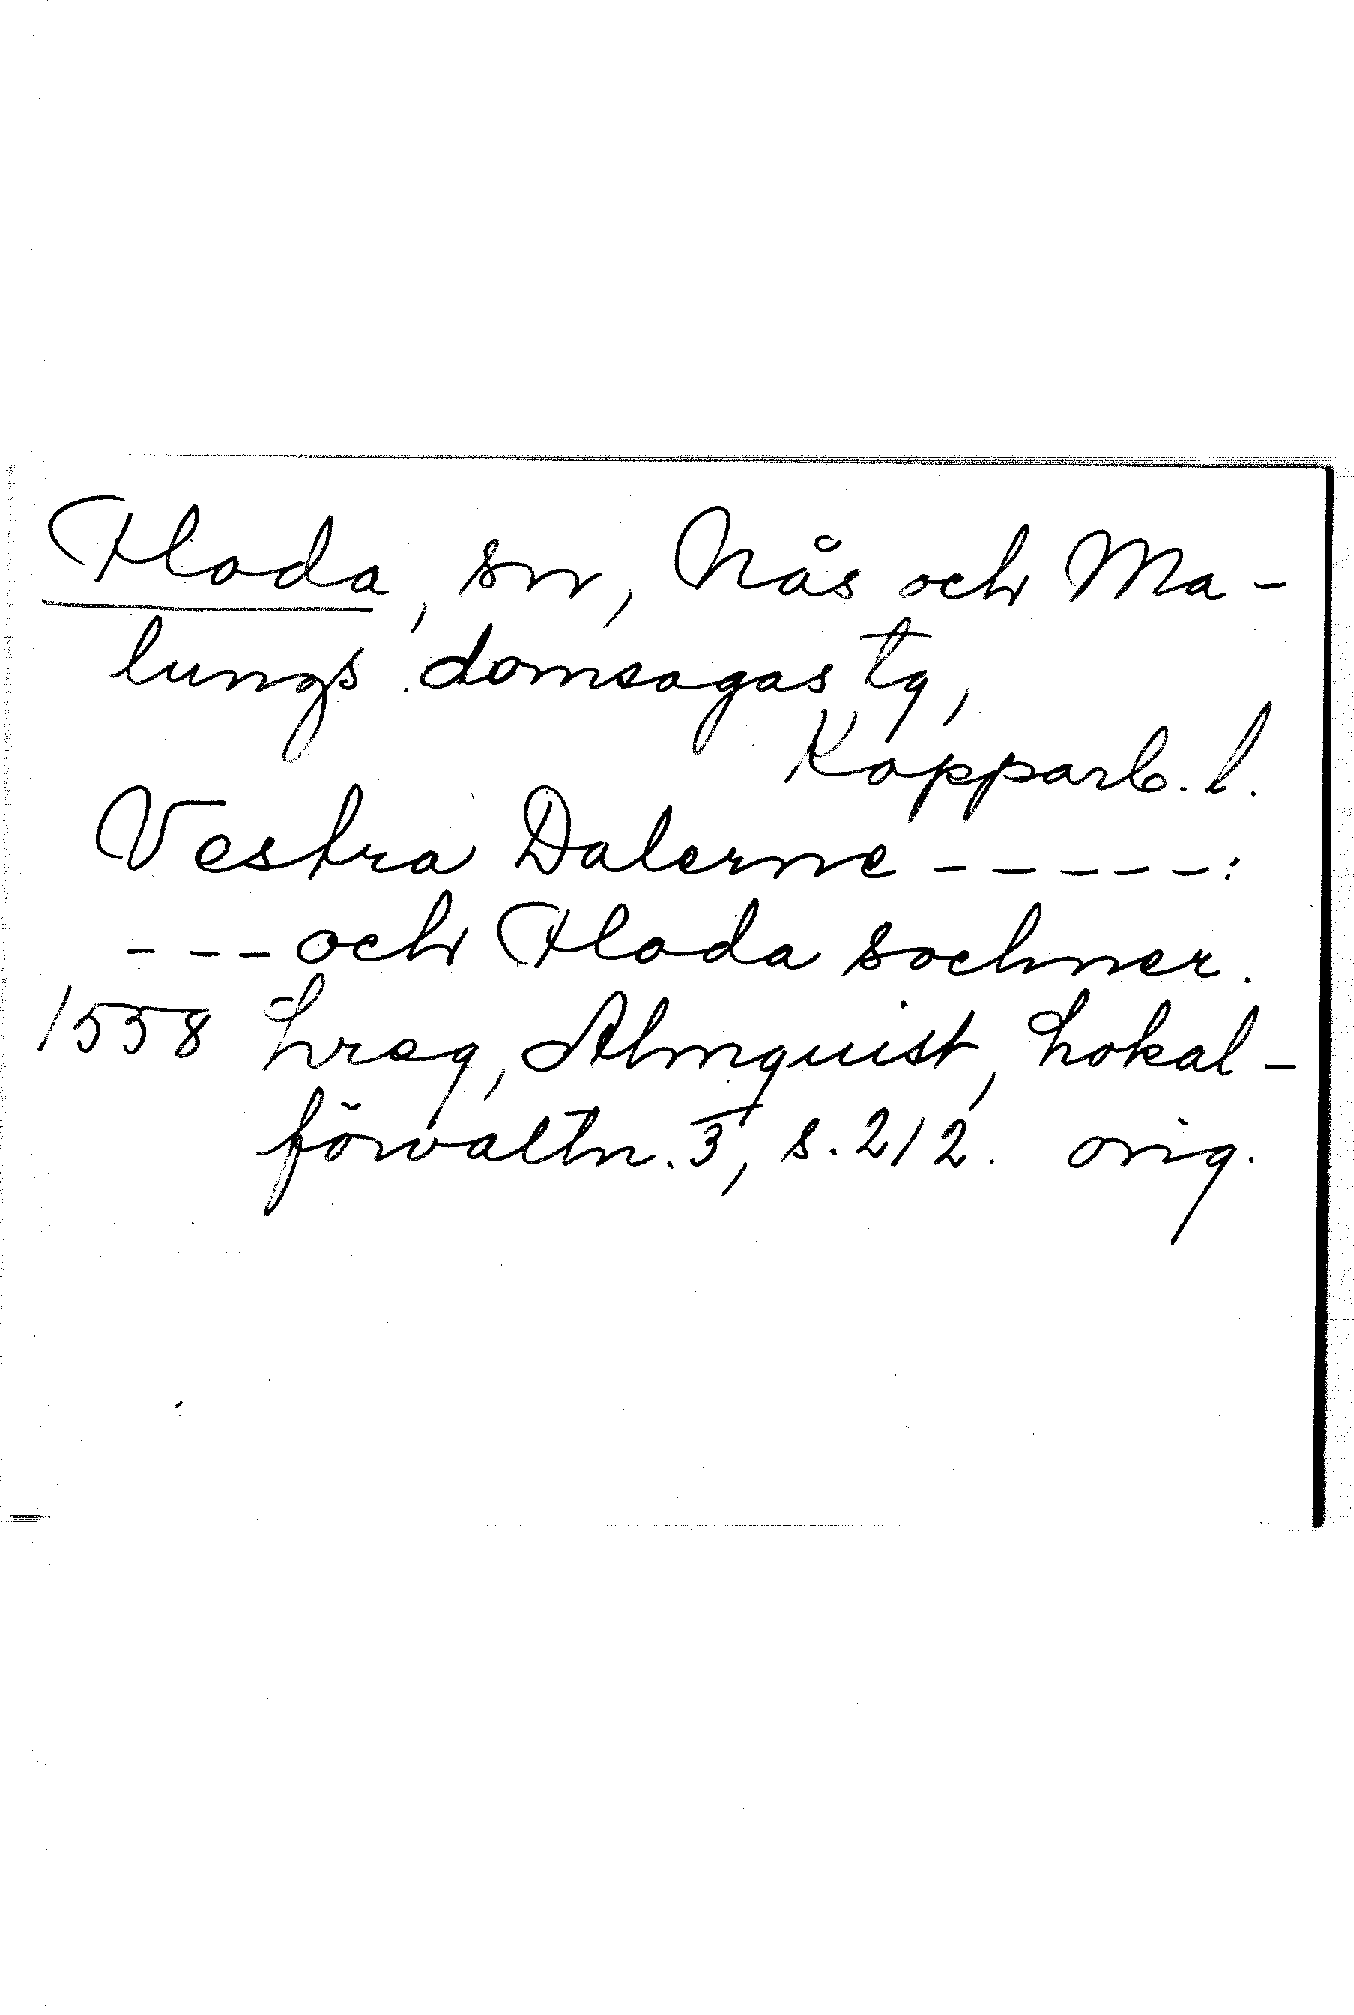 Floda, sn, Nås och Ma-
lungs domsagas tg,
Kopparb. l.
Vestra Dalerne - - - - - :
- - - och Floda sochner.
1558 Lreg, Almquist, Lokal-
förvaltn. 3, s. 212. orig.